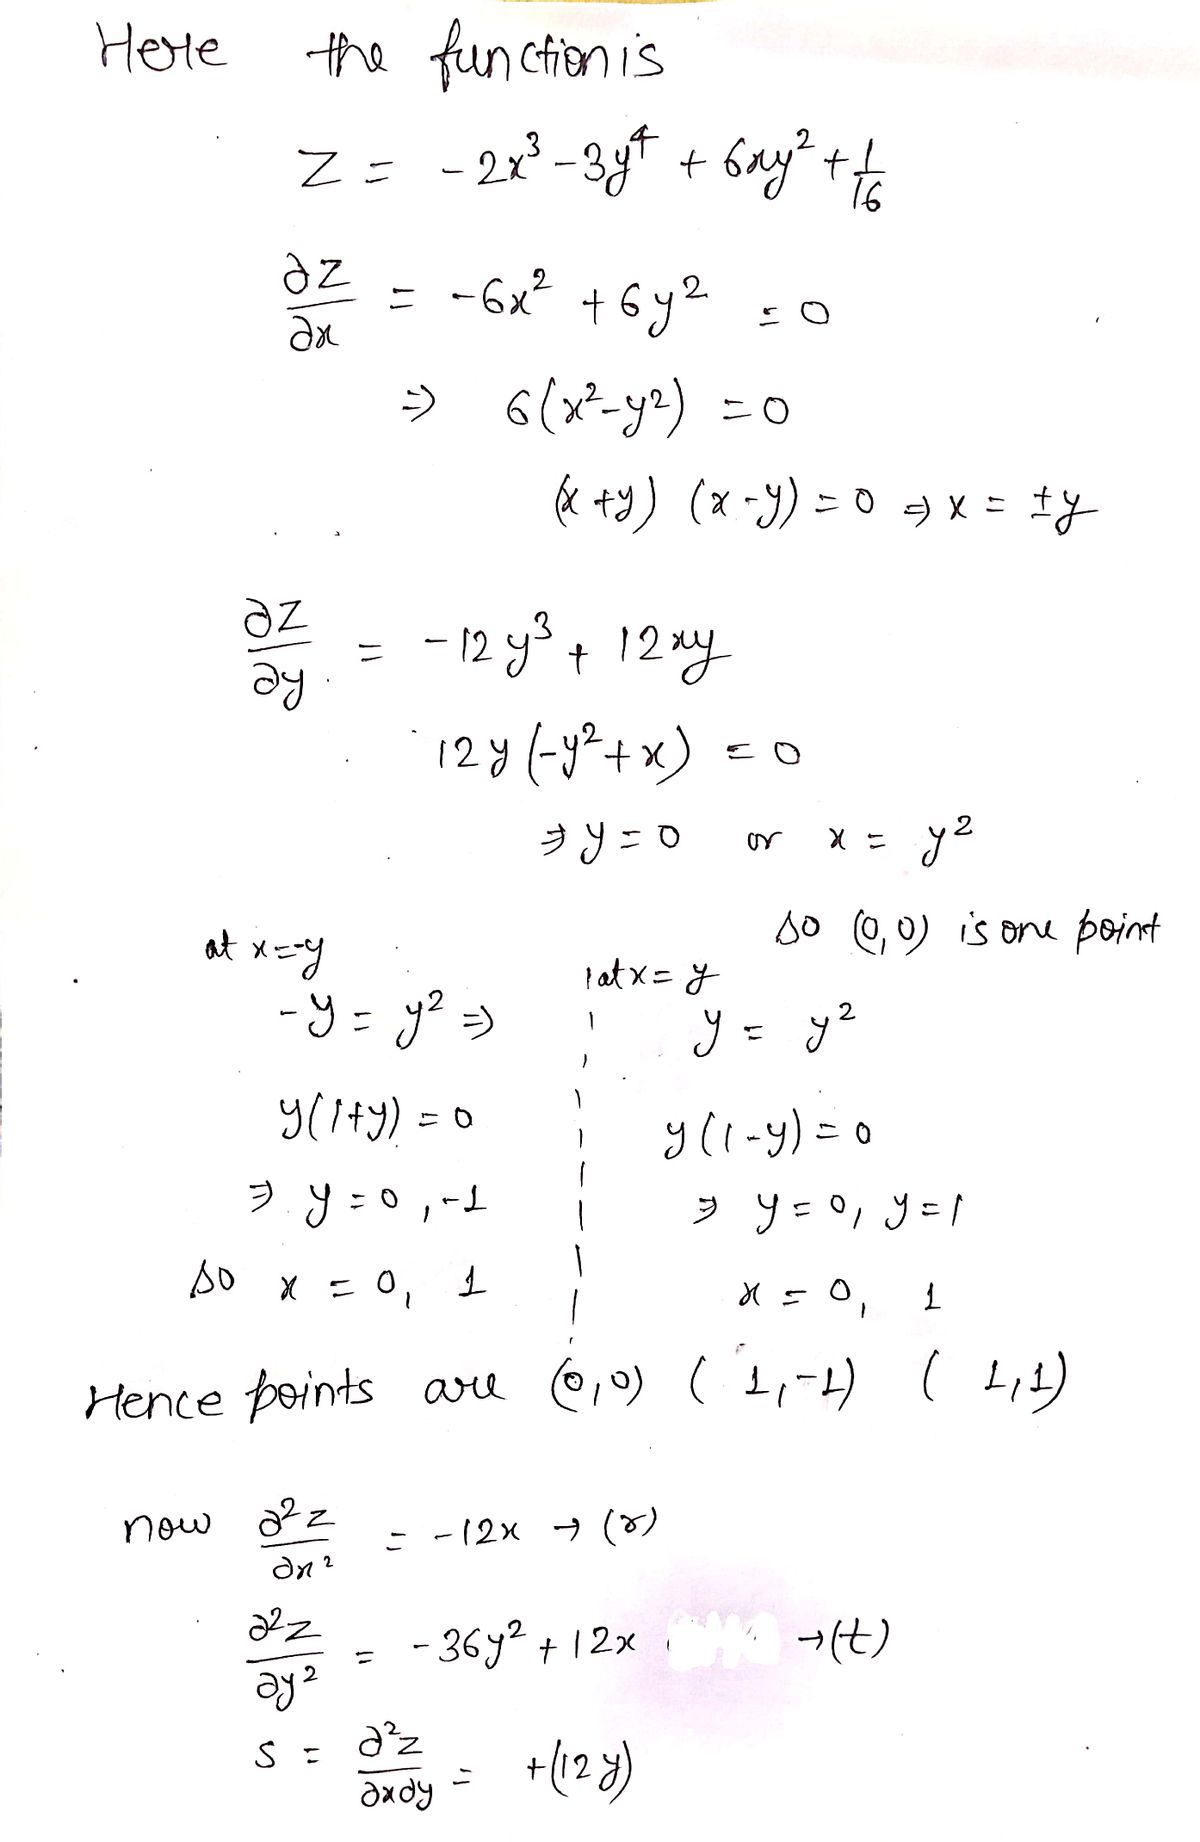 Here the function is
Z = -2x³ - 3y⁴ + 6xy² + 1/16
∂z/∂x = -6x² + 6y² = 0
⇒ 6(x²-y²) = 0
(x+y) (x-y) = 0 ⇒ x = ±y
∂z/∂y = -12y³ + 12xy
12y(-y²+x) = 0
⇒ y = 0 or x = y²
so (0,0) is one point
at x=-y
-y = y² ⇒
y(1+y) = 0
⇒ y = 0, -1
so x = 0, 1
at x = y
y = y²
y(1-y) = 0
⇒ y = 0, y = 1
x = 0, 1
Hence points are (0,0) (1,-1) (1,1)
now ∂²z/∂x² = -12x → (r)
∂²z/∂y² = -36y² + 12x → (t)
s = ∂²z/∂x∂y = +(12y)